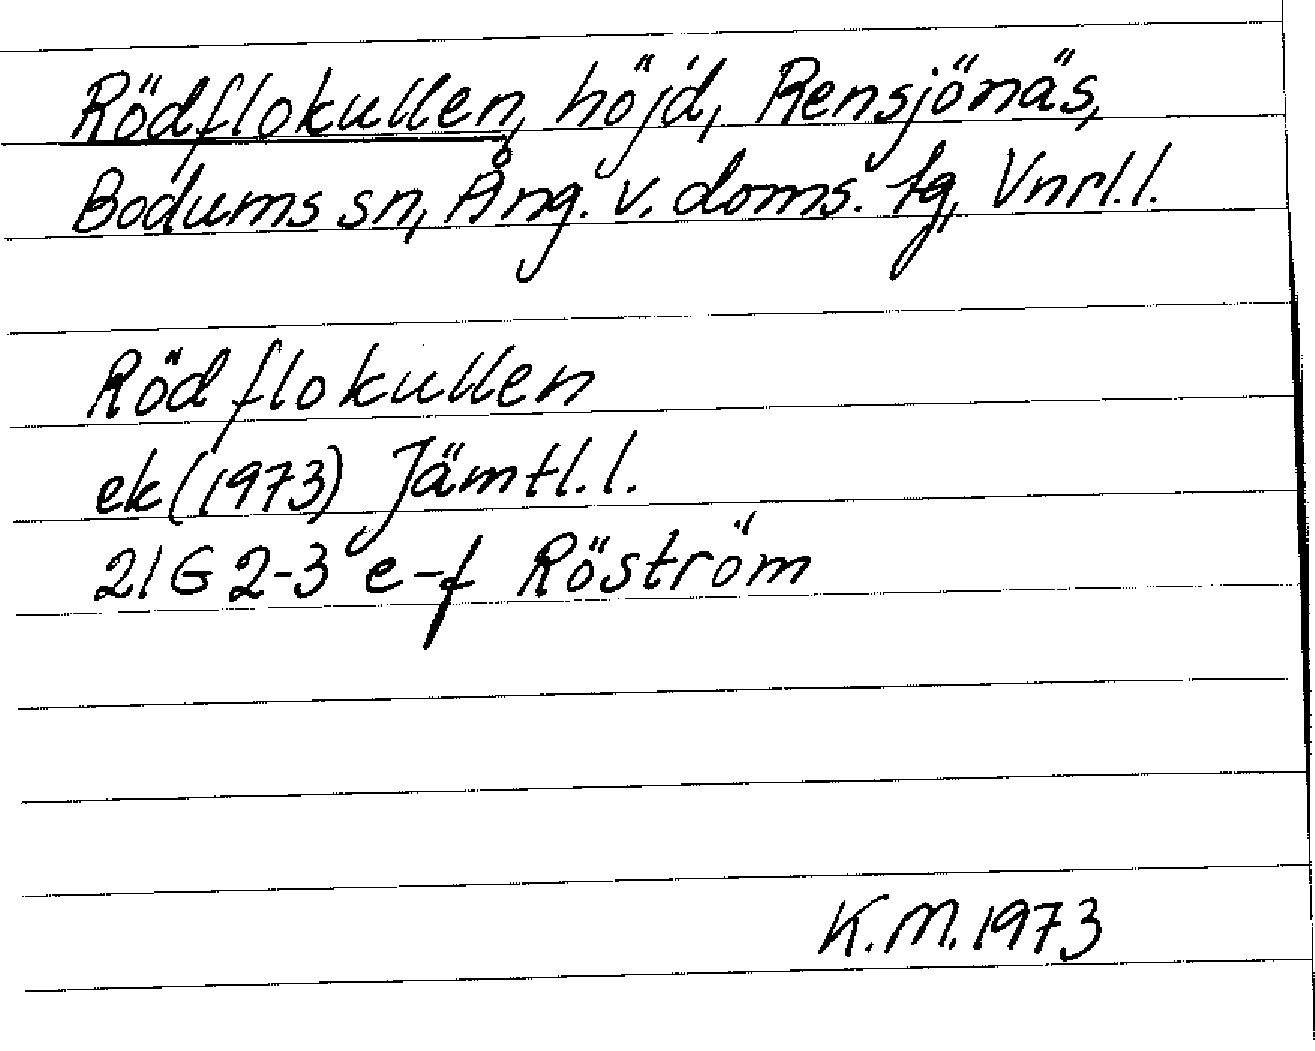 Rödflokullen, höjd, Rensjönäs,
Bodums sn, Ång. v. doms. tg, Vnrl.l.
Rödflokullen
ek (1973) Jämtl.l.
21G 2-3 e-f Röström
K.M. 1973